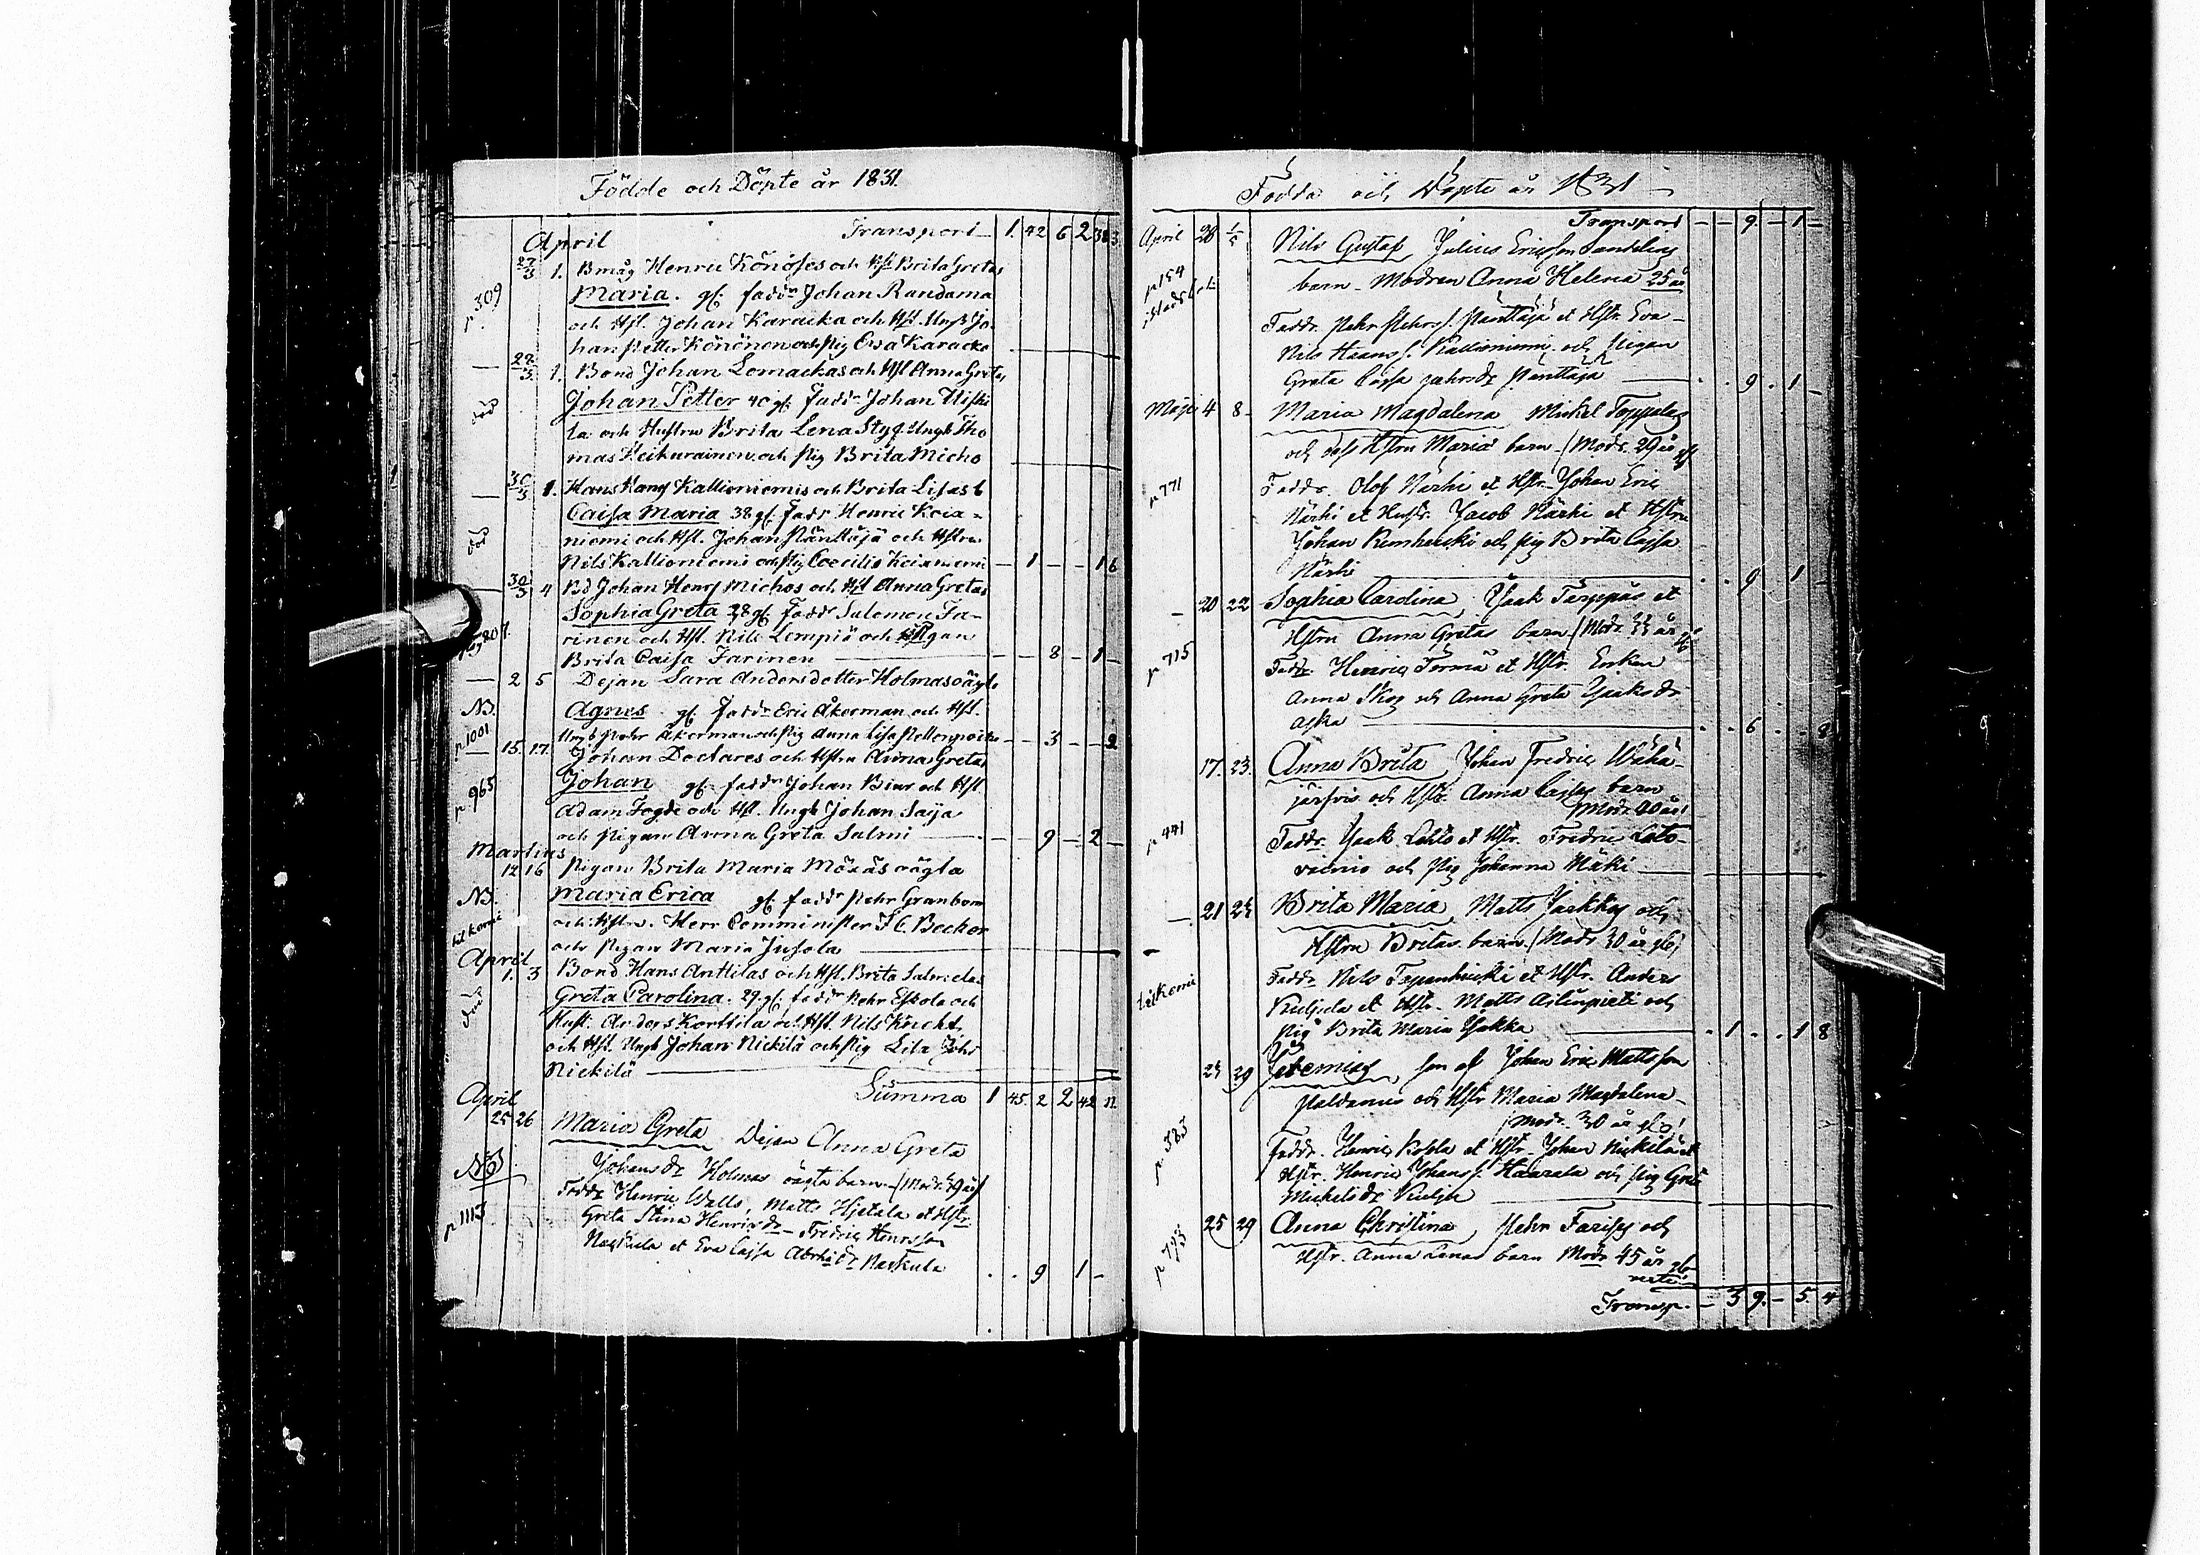 Födde och Döpte år 1831.
April Transport 1. 42 6 2 38 3
27/3 1. Bmåg Henric Könöses och Hst Brita Gretas
p 309 Maria. gf. faddr Johan Randama
och Hst. Johan Karacka och Hst. Ungk Jo-
han Petter Könönen och Pig Eva Karacka
28/3 1. Bond Johan Lomackas och Hst Anna Gretas
död Johan Petter 40 gf. Faddr Johan
la och Hustru Brita Lena Styf. Ungk Tho
mas Keikurainen och Pig Brita Micho
30/3 1. Hans Hansf Kallioniemis och Brita Lisas b
död Caisa Maria 38 gf. fadr Henric Keix-
niemi och Hst. Johan Pänttäjä och Hstru
Nils Kallioniemi och Pig Coecilia Keixniemi - 1 - - 1 6
30/3 4 Bd Johan Hensf Michos och Hst Anna Gretas
Sophia Greta 28 gf. fadd Salomon Ja-
rinen och Hst. Nils Lempiö och Pigan
Brita Caisa Jarinen - - 8 - 1 -
2 5 Dejan Sara Andersdotter Holmas oägte
NB. Agnes gf. faddr Eric Åkerman och Hst.
p 1001 Ungk Pehr Åkerman och Pig Anna Lisa - - 3 - - 2
15. 17. Johan Doctares och Hstru Anna Gretas
p 965 Johan gf. faddr Johan Biur och Hst
Adam Fogde och Hst. Ungk Johan Saija
och Pigan Anna Greta Salmi - - 9 - 2 -
Martius
12 16 Pigan Brita Maria Mäxäs oägta
NB. Maria Erica gf. faddr Pehr Granborn
och Hstru. Herr Comminister F C. Beckor
och Pigan Maria Jusola
April
1. 3 Bond Hans Anttilas och Hst. Brita Salmelas
död Greta Carolina. 29. gf. faddr Pehr Eskola och
Hust. Anders Korttila och Hst. Nils Knekt
och Hst. Ungk Johan Nickilä och Pig Lisa
Nickilä
Summa 1 45. 2 2 42 11
April
25 26 Maria Greta Dejan Anna Greta
NB. Johansdr Holmas oägta barn (Modr. 29 år)
Faddr Henric Walls, Matts Hjetala et Hstr
p 1113 Greta Stina Henricsdr Fredric Henrsson
Naskula et Eva Cajsa Abrhdr Naskula
. . 9 1 -
Födda och Döpte år 1831
Transport - - 9. - 1 -
April 28 1/5 Nils Gustaf Julius Ericsson
p 154 barn. Modren Anna Helena 25 år
Faddr. Pehr Pehrs. Pänttäjä et Hstr. Eva
Nils Hanns. Kallioniemi och Pigan
Greta Cajsa Pehrsdr Pänttäjä . . 9 . 1 -
Maji 4 8 Maria Magdalena Mickel Toppelas
och dess Hstru Marias barn (Modr. 29 år gf
p 771 Faddr. Olof Närhi et Hstr. Johan Eric
Närhi et Hustr. Jacob Närhi et Hstru
Johan och Pig Brita Cajsa
Närhi . . 9 . 1 -
20 22 Sophia Carolina, Isak Torppas et
Hstru Anna Gretas barn (Modr. 33 år gf
p 715 Faddr. Henric Törmä et Hstr. Enkan
Anna Skog och Anna Greta Isaksdr
Aska . . 6 . . 8
17. 23. Anna Brita Johan Fredric Wähä-
järfvis och Hstr. Anna Cajsas barn
Modr. 40 år
p 441 Faddr. Isak Lehto et Hstr. Fredric Lato-
vainio och Pig Johanna Mäki
21 24 Brita Maria, Matts Jackkas och
Hstru Britas barn (Modr. 30 år gf.)
Faddr. Nils et Hstr. Anders
tilkomi et Hstr. Matts och
Pig Brita Maria Jakka . 1 . . 1 8
24 29 Jeremias, son af Johan Eric Mattsson
Paldanius och Hstr Maria Magdalena
(Modr. 30 år gf.)
p 383 Faddr. Henric et Hstr. Johan Nickilä et
Hstr. Henric Johans. Haarala och Pig Greta
Mickelsdr
25 29 Anna Christina, Pehr Farisas och
p 793 Hstr. Anna Lenas barn Modr 45 år gf
Transp. - 3 9. - 5. 4